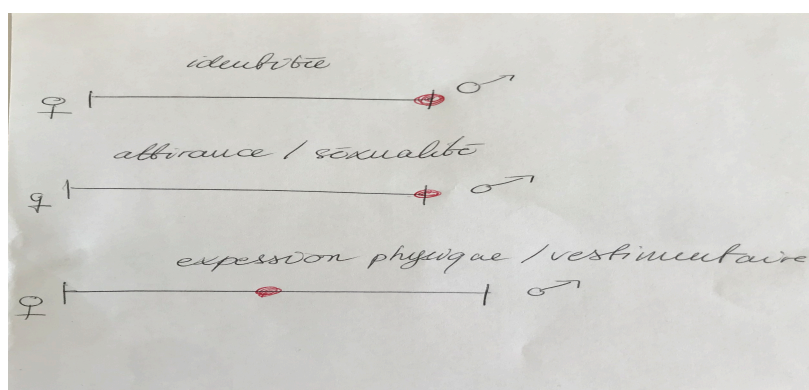 identitée
♀ ♂
attirance / séxualité
♀ ♂
expession physique / vestimentaire
♀ ♂